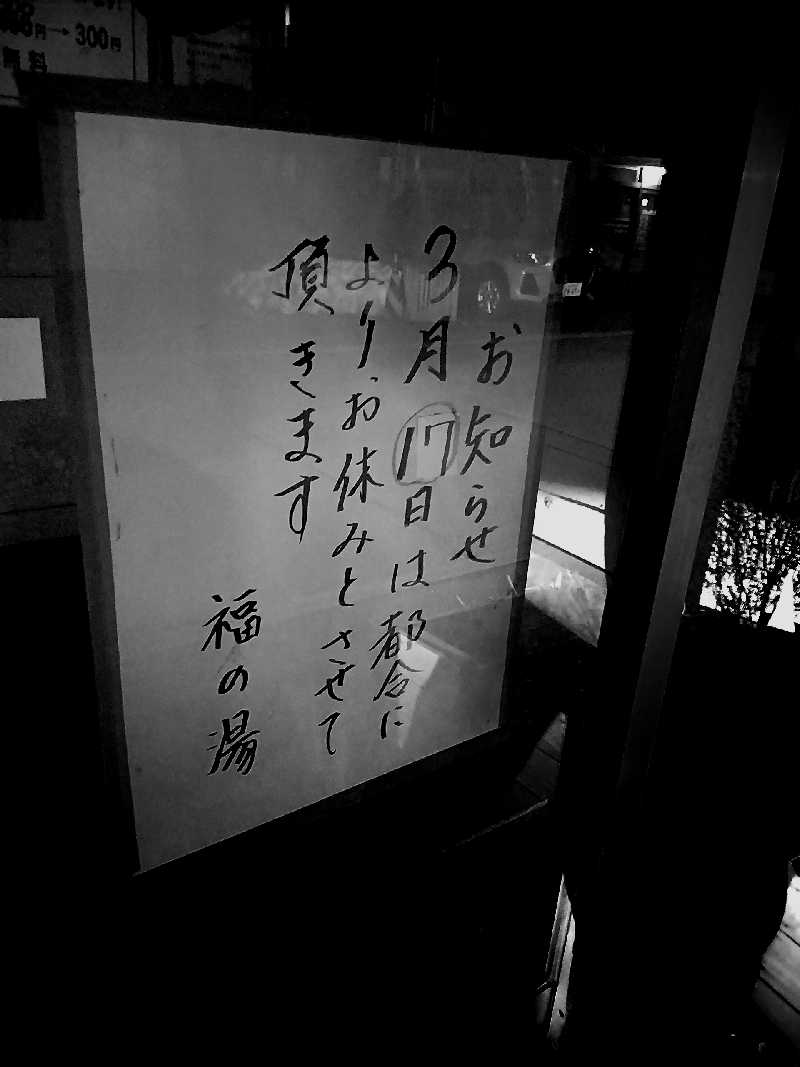 お知らせ
3月17日は都合に
よりお休みとさせて
頂きます
福の湯
円→300円
無料